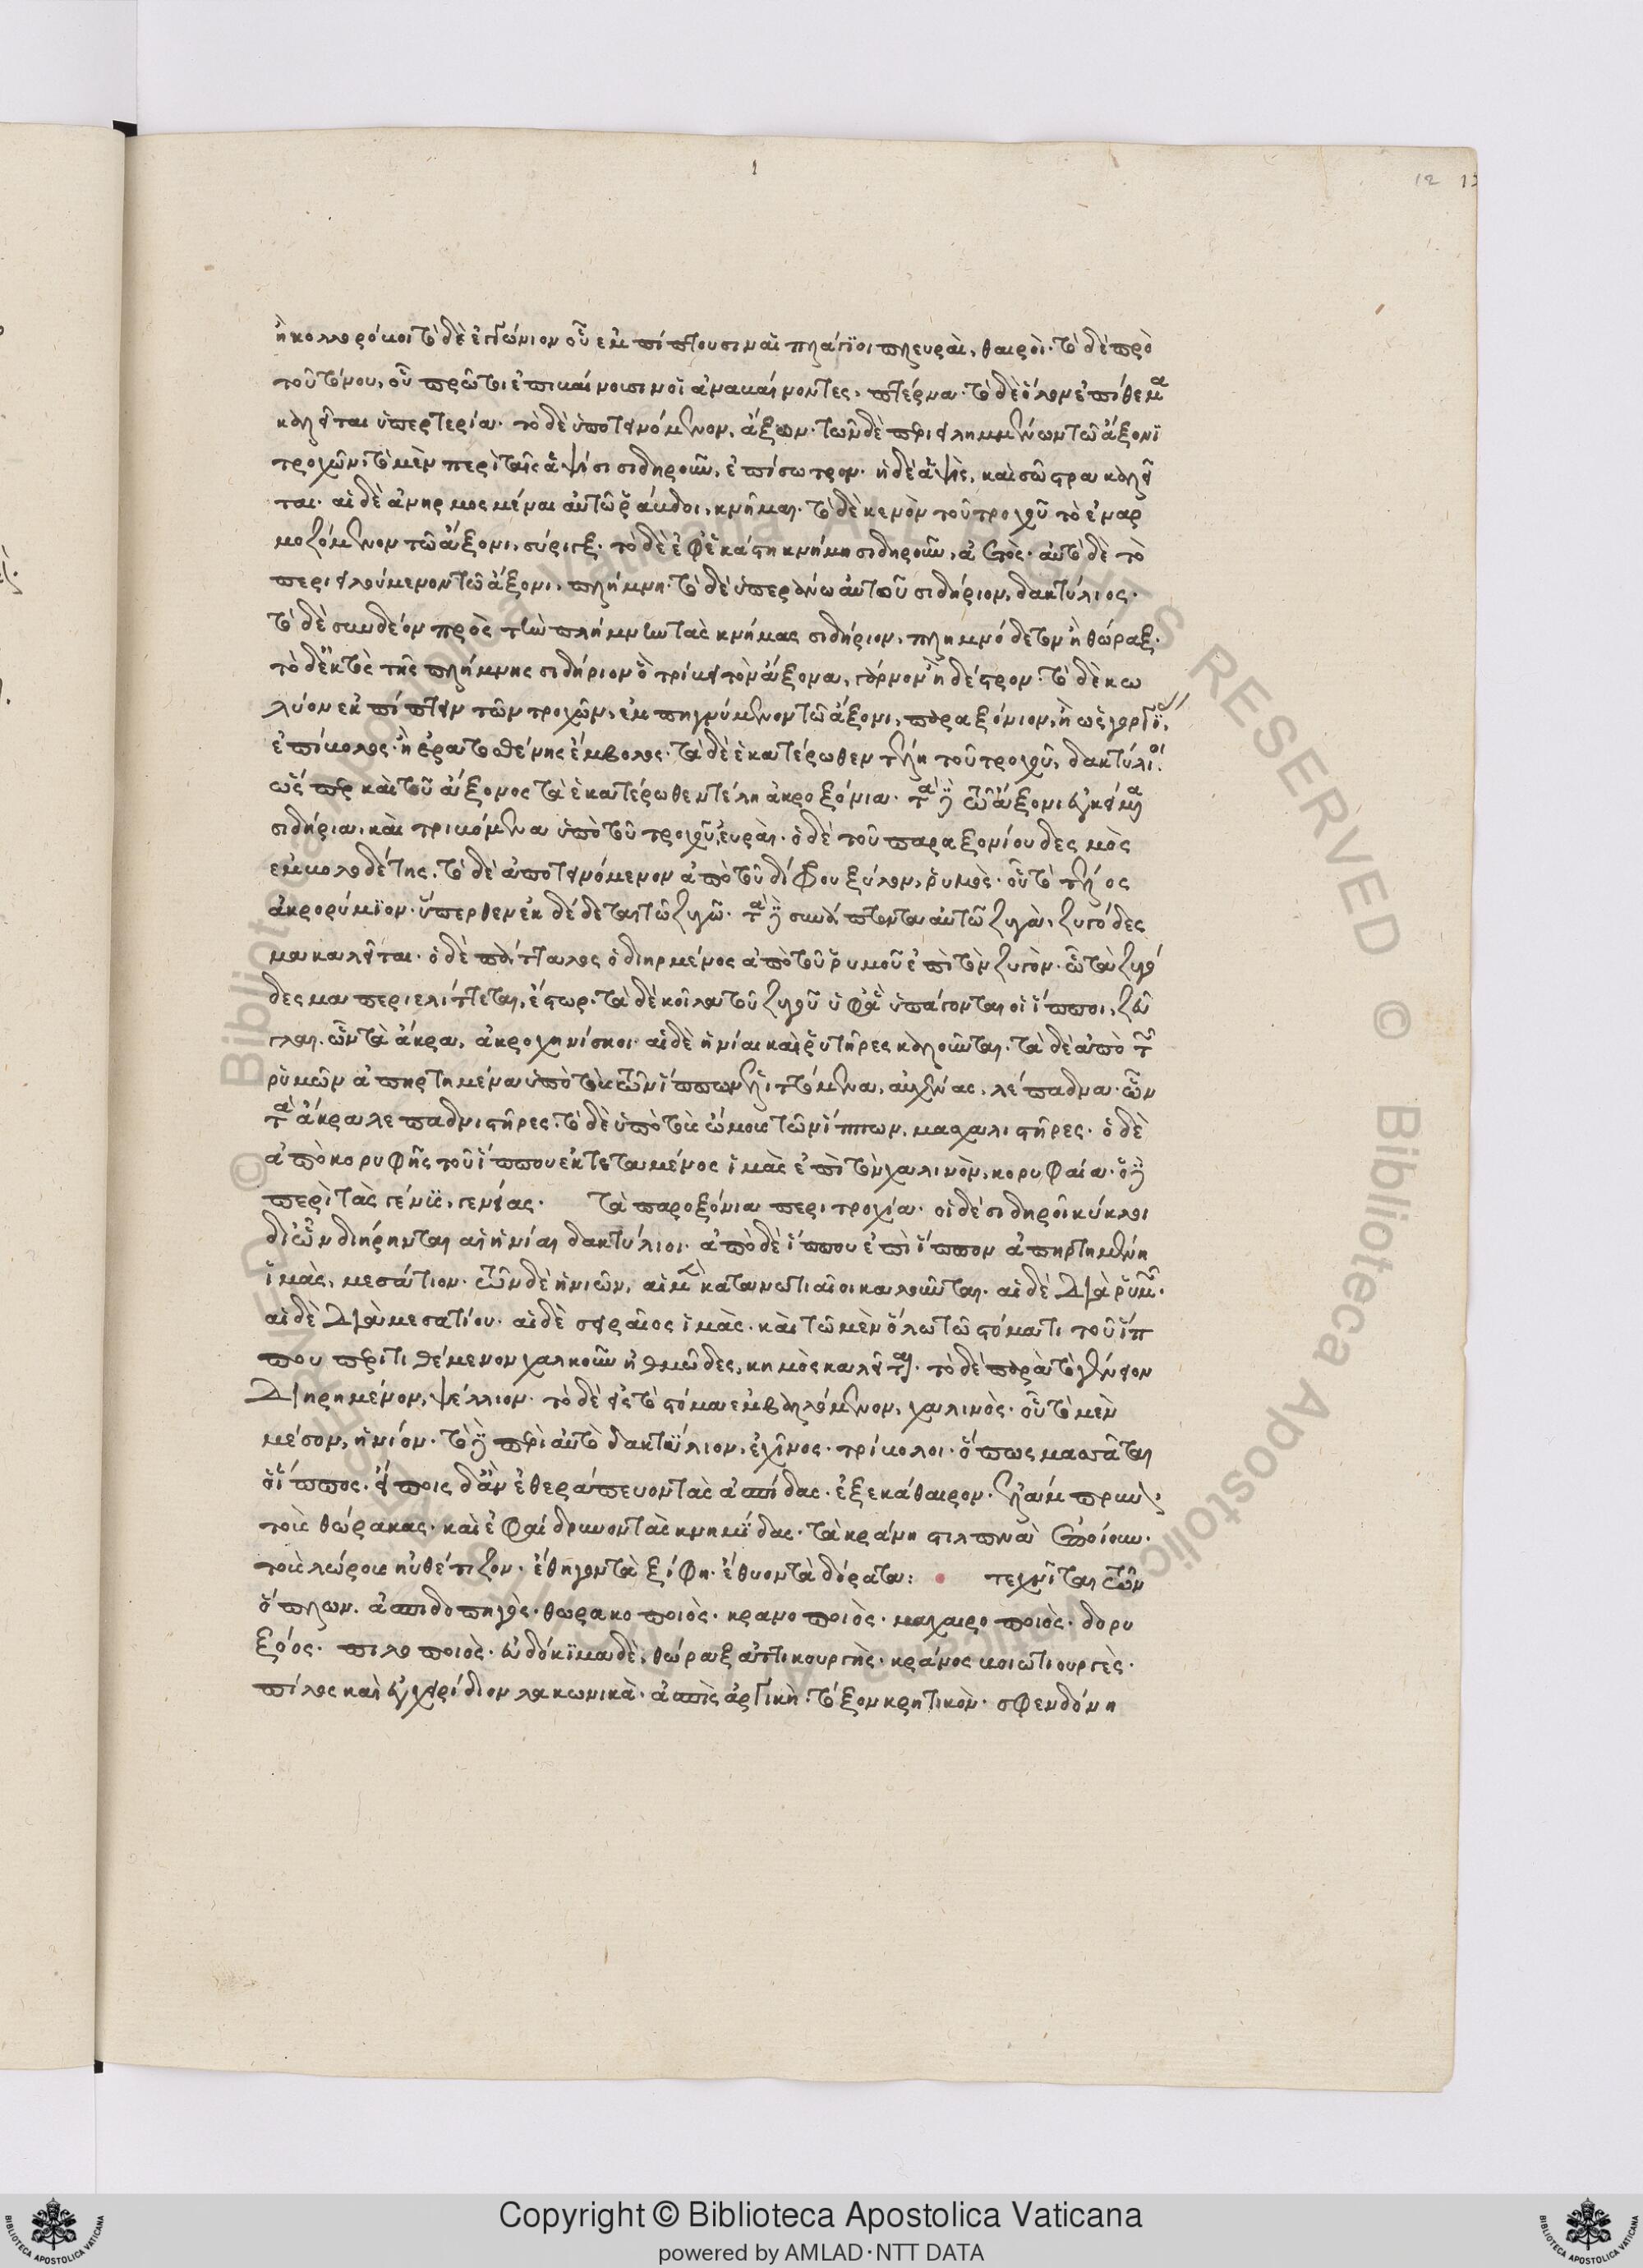 ἢ κολλορόκοι τὸ δὲ ἐγγώνιον οὗ ἐμπίπτουσιν αἱ πλάγϊοι πλευραὶ, θαιροὶ· τὸ δὲ πρὸ
τοῦ τόνου, οὗ πρῶτοι ἐπιβαίνουσιν οἱ ἀναβαίνοντες, πτέρνα· τὸ δὲ ὅλον ἐπίθεμα
καλεῖται ὑπερτερία· τὸ δὲ ὑποτεινόμενον, ἄξων· τῶν δὲ περιειλημμένων τῶ ἄξονϊ
τροχῶν, τὸ μὲν περὶ ταῖς ἁψίσι σιδηροῦν, ἐπίσωτρον· ἡ δὲ ἁψὶς, καὶ σῶτρα καλεῖ
ται· αἱ δὲ ἐνηρμοσμέναι αὐτῶ ῥάβδοι, κνῆμαι· τὸ δὲ κενὸν τοῦ τροχοῦ τὸ ἐναρ
μοζόμενον τῶ ἄξονι, σύριγξ· τὸ δὲ ἐφ' ἑκάστη κνήμη σιδηροῦν, ἀετὸς· αὐτὸ δὲ τὸ
περιειλούμενον τῶ ἄξονι, πλήμνη· τὸ δὲ ὑπεράνω αὐτοῦ σιδήριον, δακτύλιος·
τὸ δὲ συνδέον πρὸς τὴν πλήμνην τὰς κνήμας σιδήριον, πλημνόδετον ἢ θώραξ·
τὸ δὲ ἐκτὸς τῆς πλήμνης σιδήριον ὃ τρίβει τὸν ἄξονα, γάρνον ἢ δέστρον· τὸ δὲ κω
λύον ἐκπίπτειν τῶν τροχῶν, ἐμπηγνύμενον τῶ ἄξονι, παραξόνιον, ἢ ὡς
ἐπίβολος· ἢ ἐρατοσθένης ἔμβολος· τὰ δὲ ἑκατέρωθεν τέλη τοῦ τροχοῦ, δακτύλιοι·
ὥσπερ καὶ τοῦ ἄξονος τὰ ἑκατέρωθεν τέλη ἀκροξόνια· τὰ δὲ τῶ ἄξονι ἐγκείμενα
σιδήρια, καὶ τριβόμενα ὑπὸ τοῦ τροχοῦ, εὐραὶ· ὁ δὲ τοῦ παραξονίου δεσμὸς
ἐμβολοδέτης· τὸ δὲ ἀποτεινόμενον ἀπὸ τοῦ δίφρου ξύλον, ῥυμὸς· οὗ τὸ τέλος
ἀκρορύμϊον· ὕπερθεν ἐκδέδεται τῶ ζυγῶ· τὰ δὲ συνάπτοντα αὐτῶ ζυγὰ, ζυγόδες
μα καλεῖται· ὁ δὲ πάτταλος ὁ διηρμένος ἀπὸ τοῦ ῥυμοῦ ἐπὶ τὸν ζυγὸν· ὧ τὰ ζυγό
δεσμα περιελίττεται, ἕστωρ· τὰ δὲ κοῖλα τοῦ ζυγοῦ ὑφ' ἃ ὑπάγονται οἱ ἵπποι, ζεῦ
γλαι· ὧν τὰ ἄκρα, ἀκροχηνίσκοι· αἱ δὲ ἡνίαι καὶ ῥυτῆρες καλοῦνται· τὰ δὲ ἀπὸ τῶν
ῥυμῶν ἀπηρτημένα ὑπὸ τοὺς τῶν ἵππων ἑλιττόμενα, αὐχένας, λέπαδνα· ὧν
τὰ ἄκρα λεπαδνιστῆρες· τὸ δὲ ὑπὸ τοὺς ὤμους τῶν ἵππων, μασχαλιστῆρες· ὁ δὲ
ἀπὸ κορυφῆς τοῦ ἵππου ἐκτεταμένος ἱμὰς ἐπὶ τὸν χαλινὸν, κορυφαία· ὁ δὲ
περὶ τὰς γένυς, γενειάς· τὰ παροξόνια περιτροχία· οἱ δὲ σιδηροῖ κύκλοι
δι' ὧν διήρηνται αἱ ἡνίαι δακτύλιοι· ἀπὸ δὲ ἵππου ἐπὶ ἵππον ἀπηρτημένη
ἱμὰς, μεσάτιον· τῶν δὲ ἡνιῶν, αἱ μὲν κατανωτιαῖοι καλοῦνται· αἱ δὲ διὰ ῥυμῶν·
αἱ δὲ διὰ μεσατίου· αἱ δὲ σειραῖος ἱμὰς· καὶ τῶ μὲν ὅλω τῶ στόματι τοῦ ἵπ
που περιτιθέμενον χαλκοῦν ἠθμῶδες, κημὸς καλεῖται· τὸ δὲ παρὰ τὸ γένειον
διηρημένον, ψέλλιον· τὸ δὲ εἰς τὸ στόμα ἐμβαλλόμενον, χαλινὸς· οὗ τὸ μὲν
μέσον, ἡνίον· τὸ δὲ περὶ αὐτὸ δακτυϊλιον, ἐχῖνος· τρίβολοι· ὅπως μασᾶται
ὁ ἵππος· εἴποις δ' ἂν ἐθεράπευον τὰς ἀσπίδας· ἐξεκάθαιρον· ἐλάμπρυνον
τοὺς θώρακας· καὶ ἐφαίδρυνον τὰς κνημϊδας· τὰ κράνη στιλπνὰ ἐποίουν·
τοὺς λώρους ηὐθέτιζον· ἔθηγον τὰ ξίφη· ἔθυον τὰ δόρατα: τεχνῖται τῶν
ὅπλων· ἀσπιδοπηγὸς· θωρακοποιὸς· κρανοποιὸς· μαχαιροποιὸς· δορυ
ξόος· πιλοποιὸς· εὐδόκϊμα δὲ, θώραξ ἀττικουργὴς· κράνος βοιωτιουργὲς·
πίλος καὶ ἐγχειρίδιον λακωνικὰ· ἀσπὶς ἀργικὴ· τόξον κρητικὸν· σφενδόνη
12
Copyright © Biblioteca Apostolica Vaticana
powered by AMLAD·NTT DATA